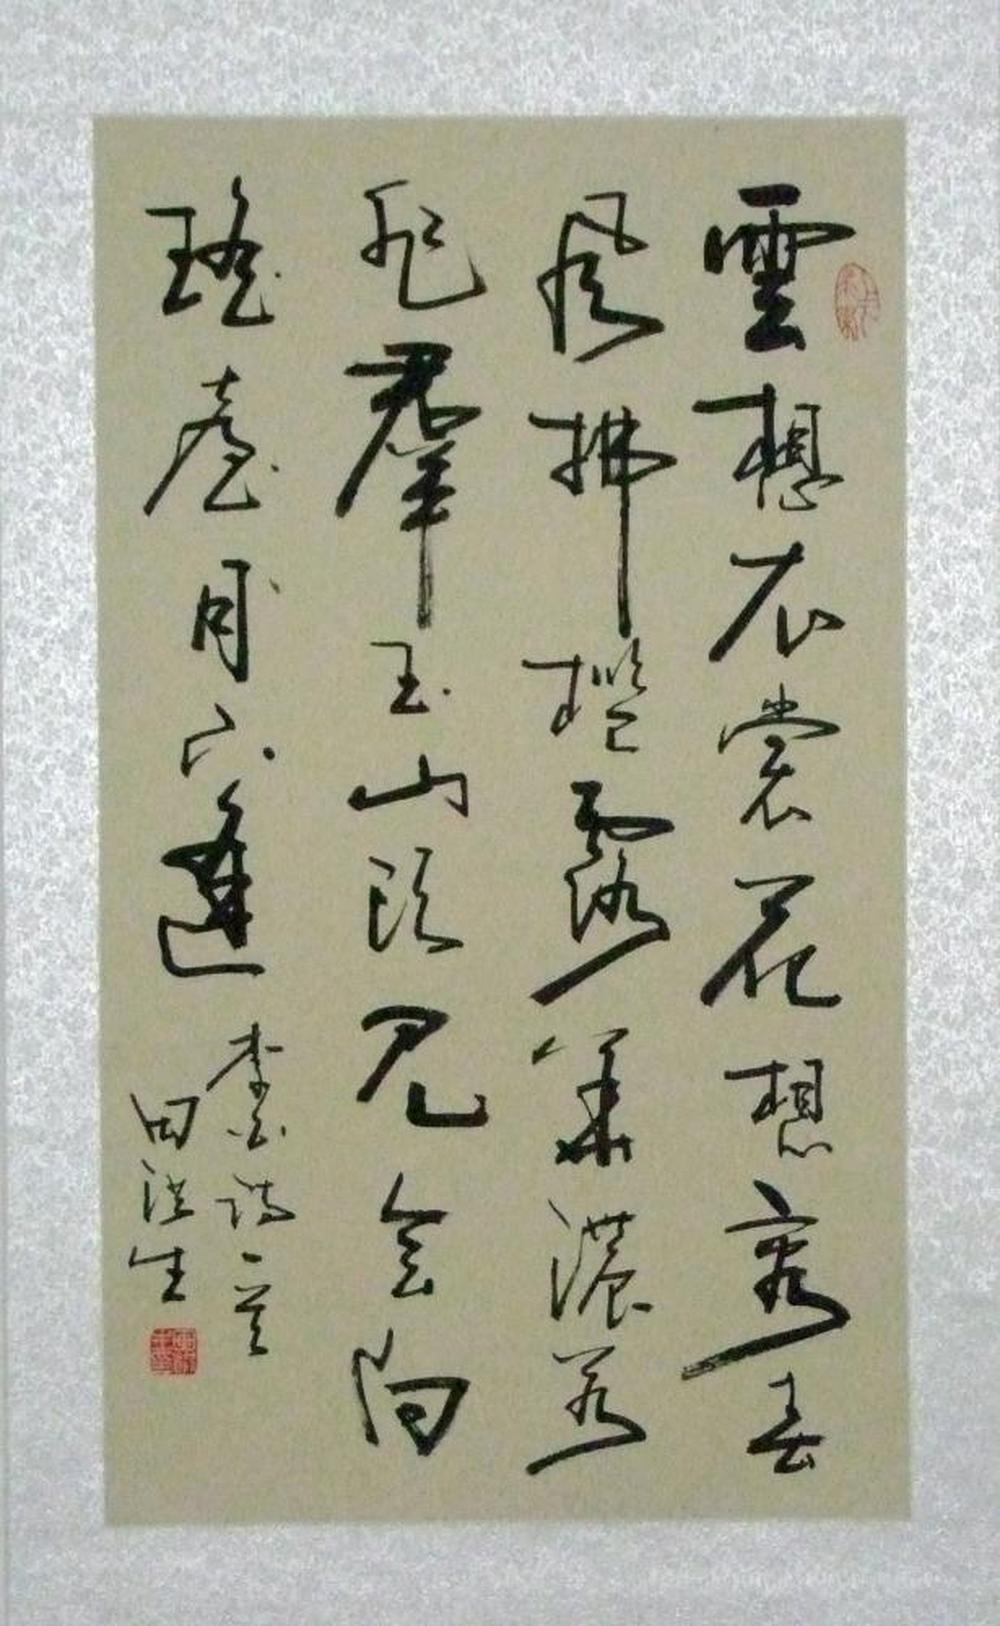 雲想衣裳花想容春
風拂檻露華濃若
非羣玉山頭見會向
瑤臺月下逢
李白詩一首
田洪生